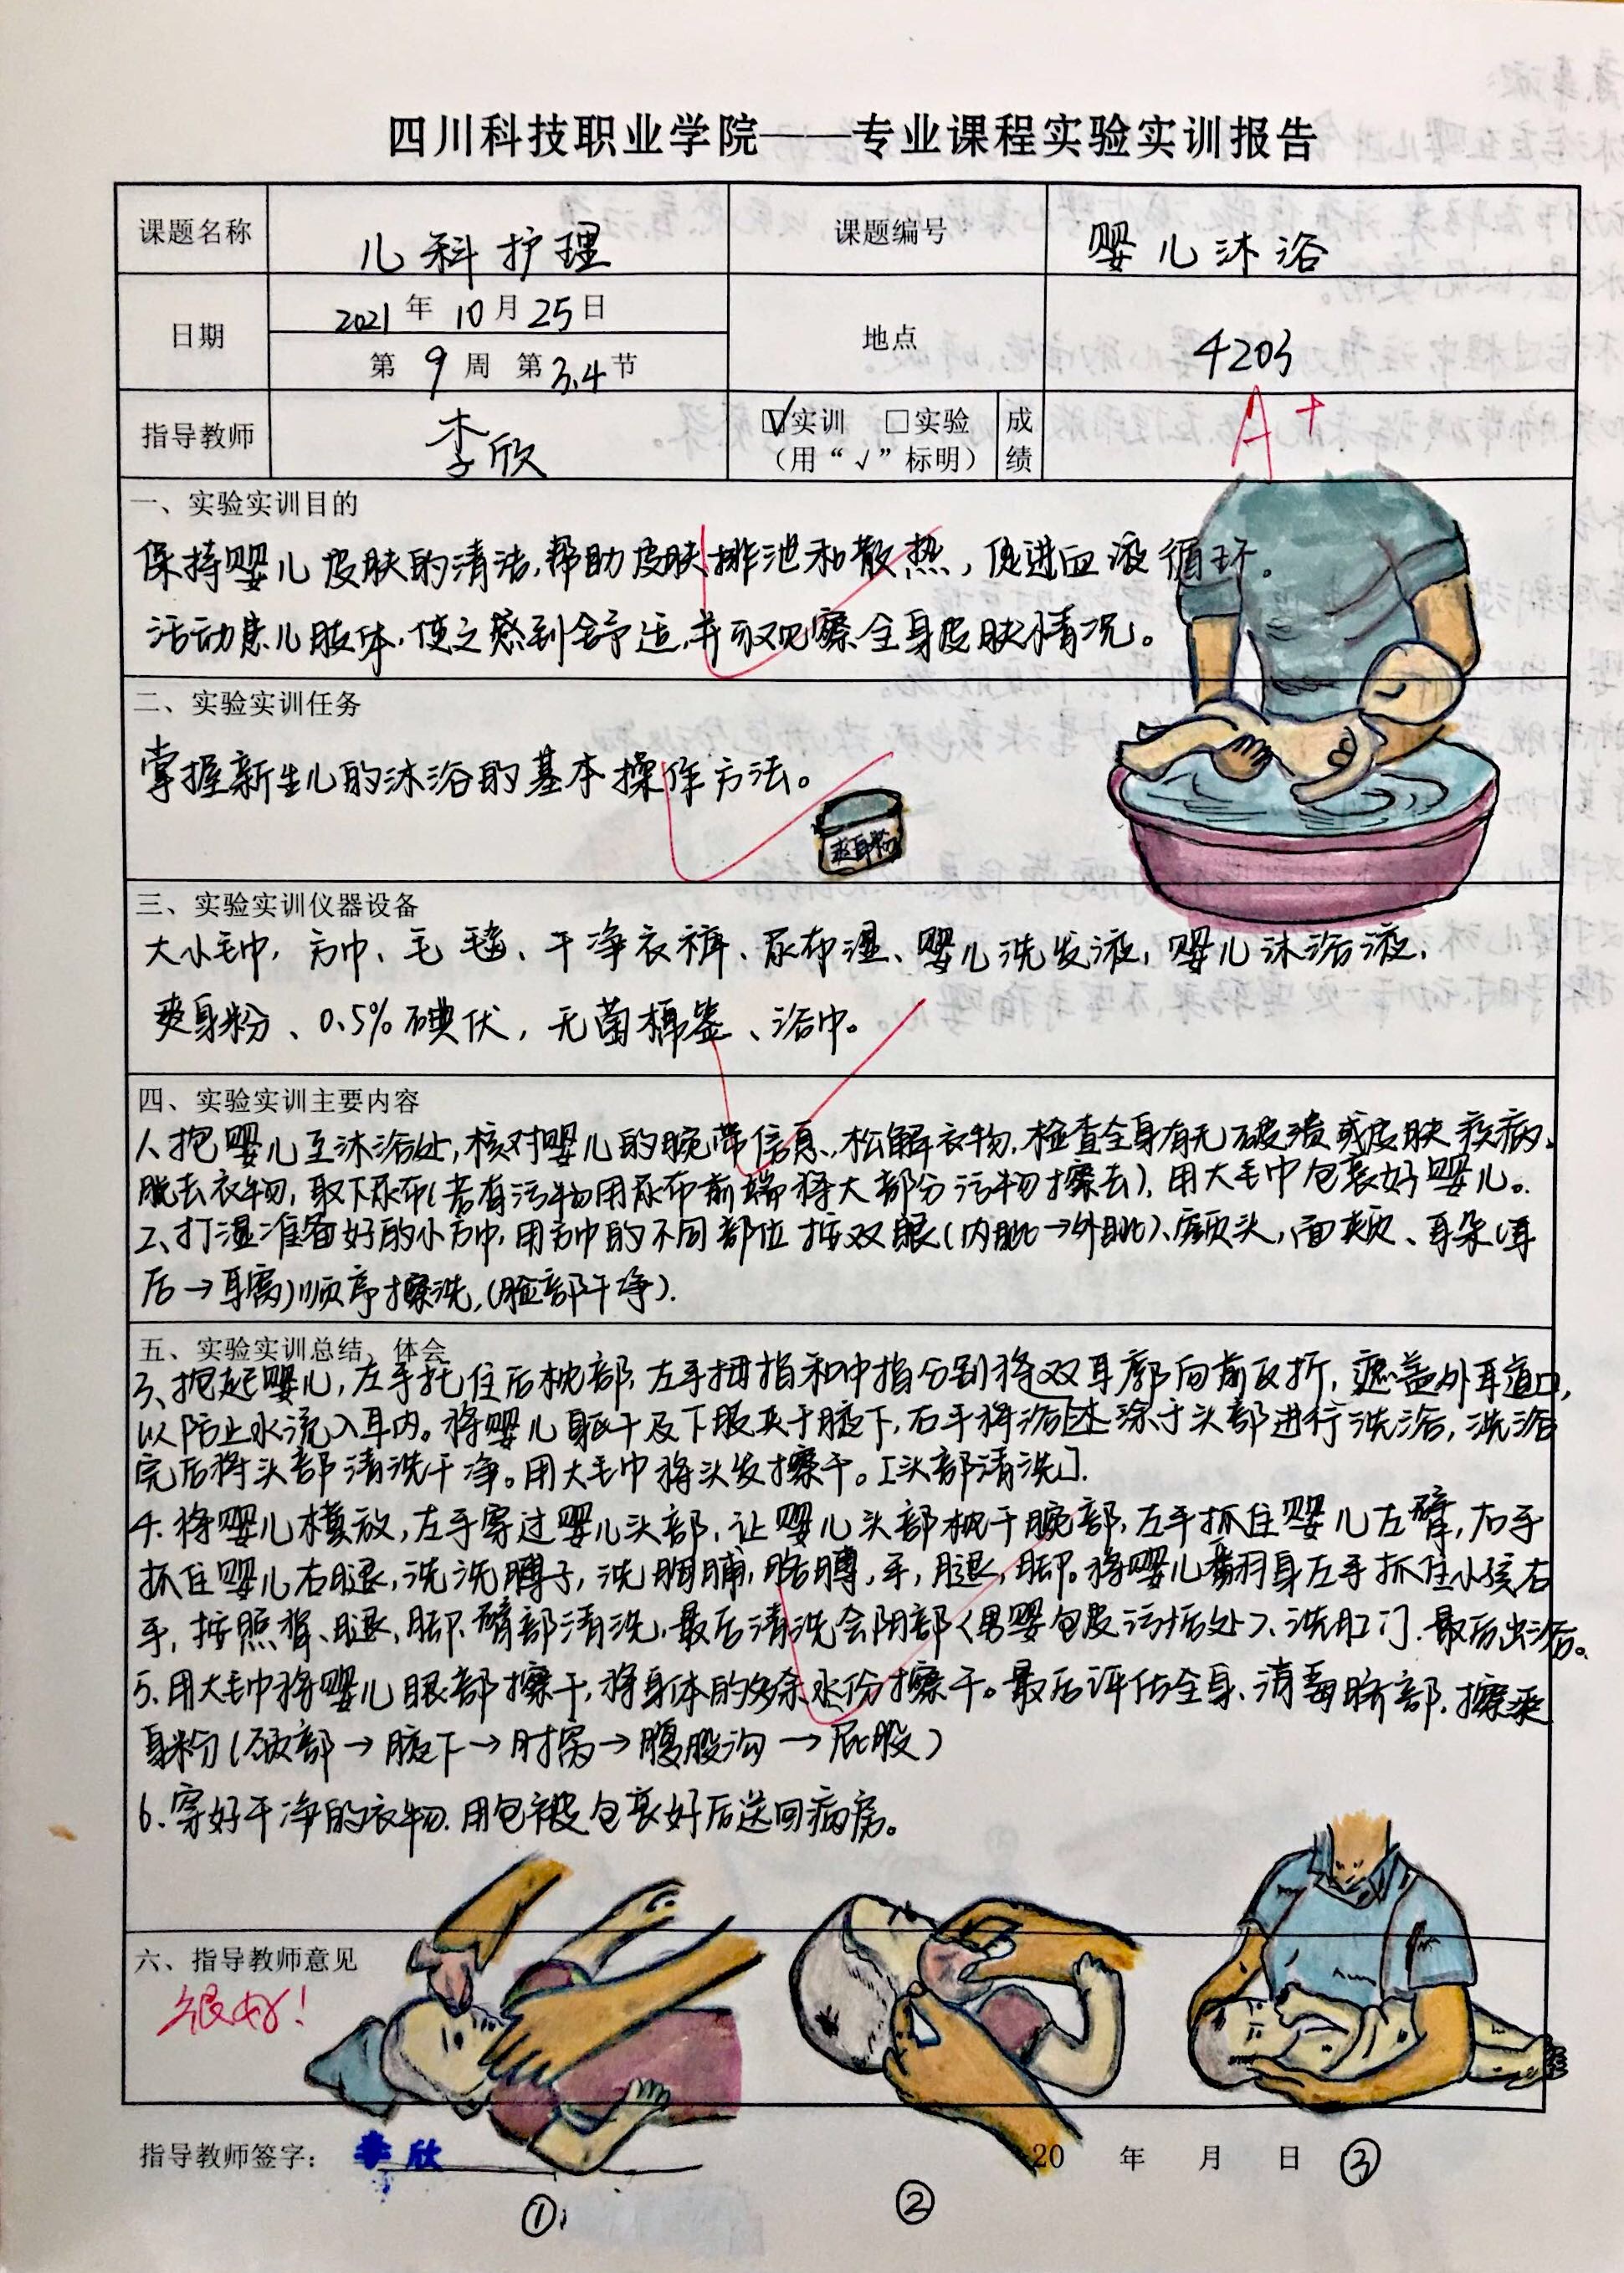 四川科技职业学院——专业课程实验实训报告
课题名称 儿科护理 课题编号 婴儿沐浴
日期 2021年10月25日 地点 4203
第9周 第3.4节
指导教师 李欣 ☑实训 □实验 成绩 A+
（用“√”标明）
一、实验实训目的
保持婴儿皮肤的清洁,帮助皮肤排泄和散热,促进血液循环。
活动患儿肢体,使之感到舒适,并可观察全身皮肤情况。
二、实验实训任务
掌握新生儿的沐浴的基本操作方法。
爽身粉
三、实验实训仪器设备
大小毛巾,方巾、毛毯、干净衣裤、尿布湿、婴儿洗发液,婴儿沐浴液,
爽身粉、0.5%碘伏,无菌棉签、浴巾。
四、实验实训主要内容
1.抱婴儿至沐浴处,核对婴儿的腕带信息,松解衣物,检查全身有无破溃或皮肤疾病、
脱去衣物,取下尿布(若有污物用尿布前端将大部分污物擦去),用大毛巾包裹好婴儿。
2、打湿准备好的小方巾,用方巾的不同部位按双眼(内眦→外眦)、额头,面颊、耳朵(耳
后→耳窝)顺序擦洗,(脸部干净).
五、实验实训总结、体会
3、抱起婴儿,左手托住后枕部,左手拇指和中指分别将双耳廓向前反折,遮盖外耳道口,
以防止水流入耳内。将婴儿躯干及下肢夹于腋下,右手将浴沫涂于头部进行洗浴,洗浴
完后将头部清洗干净。用大毛巾将头发擦干。[头部清洗].
4.将婴儿横放,左手穿过婴儿头部,让婴儿头部枕于腕部,左手抓住婴儿左臂,右手
抓住婴儿右腿,洗洗脖子,洗胸脯,胳膊,手,腿,脚。将婴儿翻身左手抓住小孩右
手,按照背、腿、脚、臂部清洗,最后清洗会阴部(男婴包皮污垢处)、洗肛门.最后出浴。
5、用大毛巾将婴儿眼部擦干,将身体的多余水份擦干。最后评估全身、消毒脐部,擦爽
身粉(颈部→腋下→肘窝→腹股沟→屁股)
6.穿好干净的衣物.用包被包裹好后送回病房。
六、指导教师意见
很好!
指导教师签字: 李欣 20 年 月 日 ③
① ②